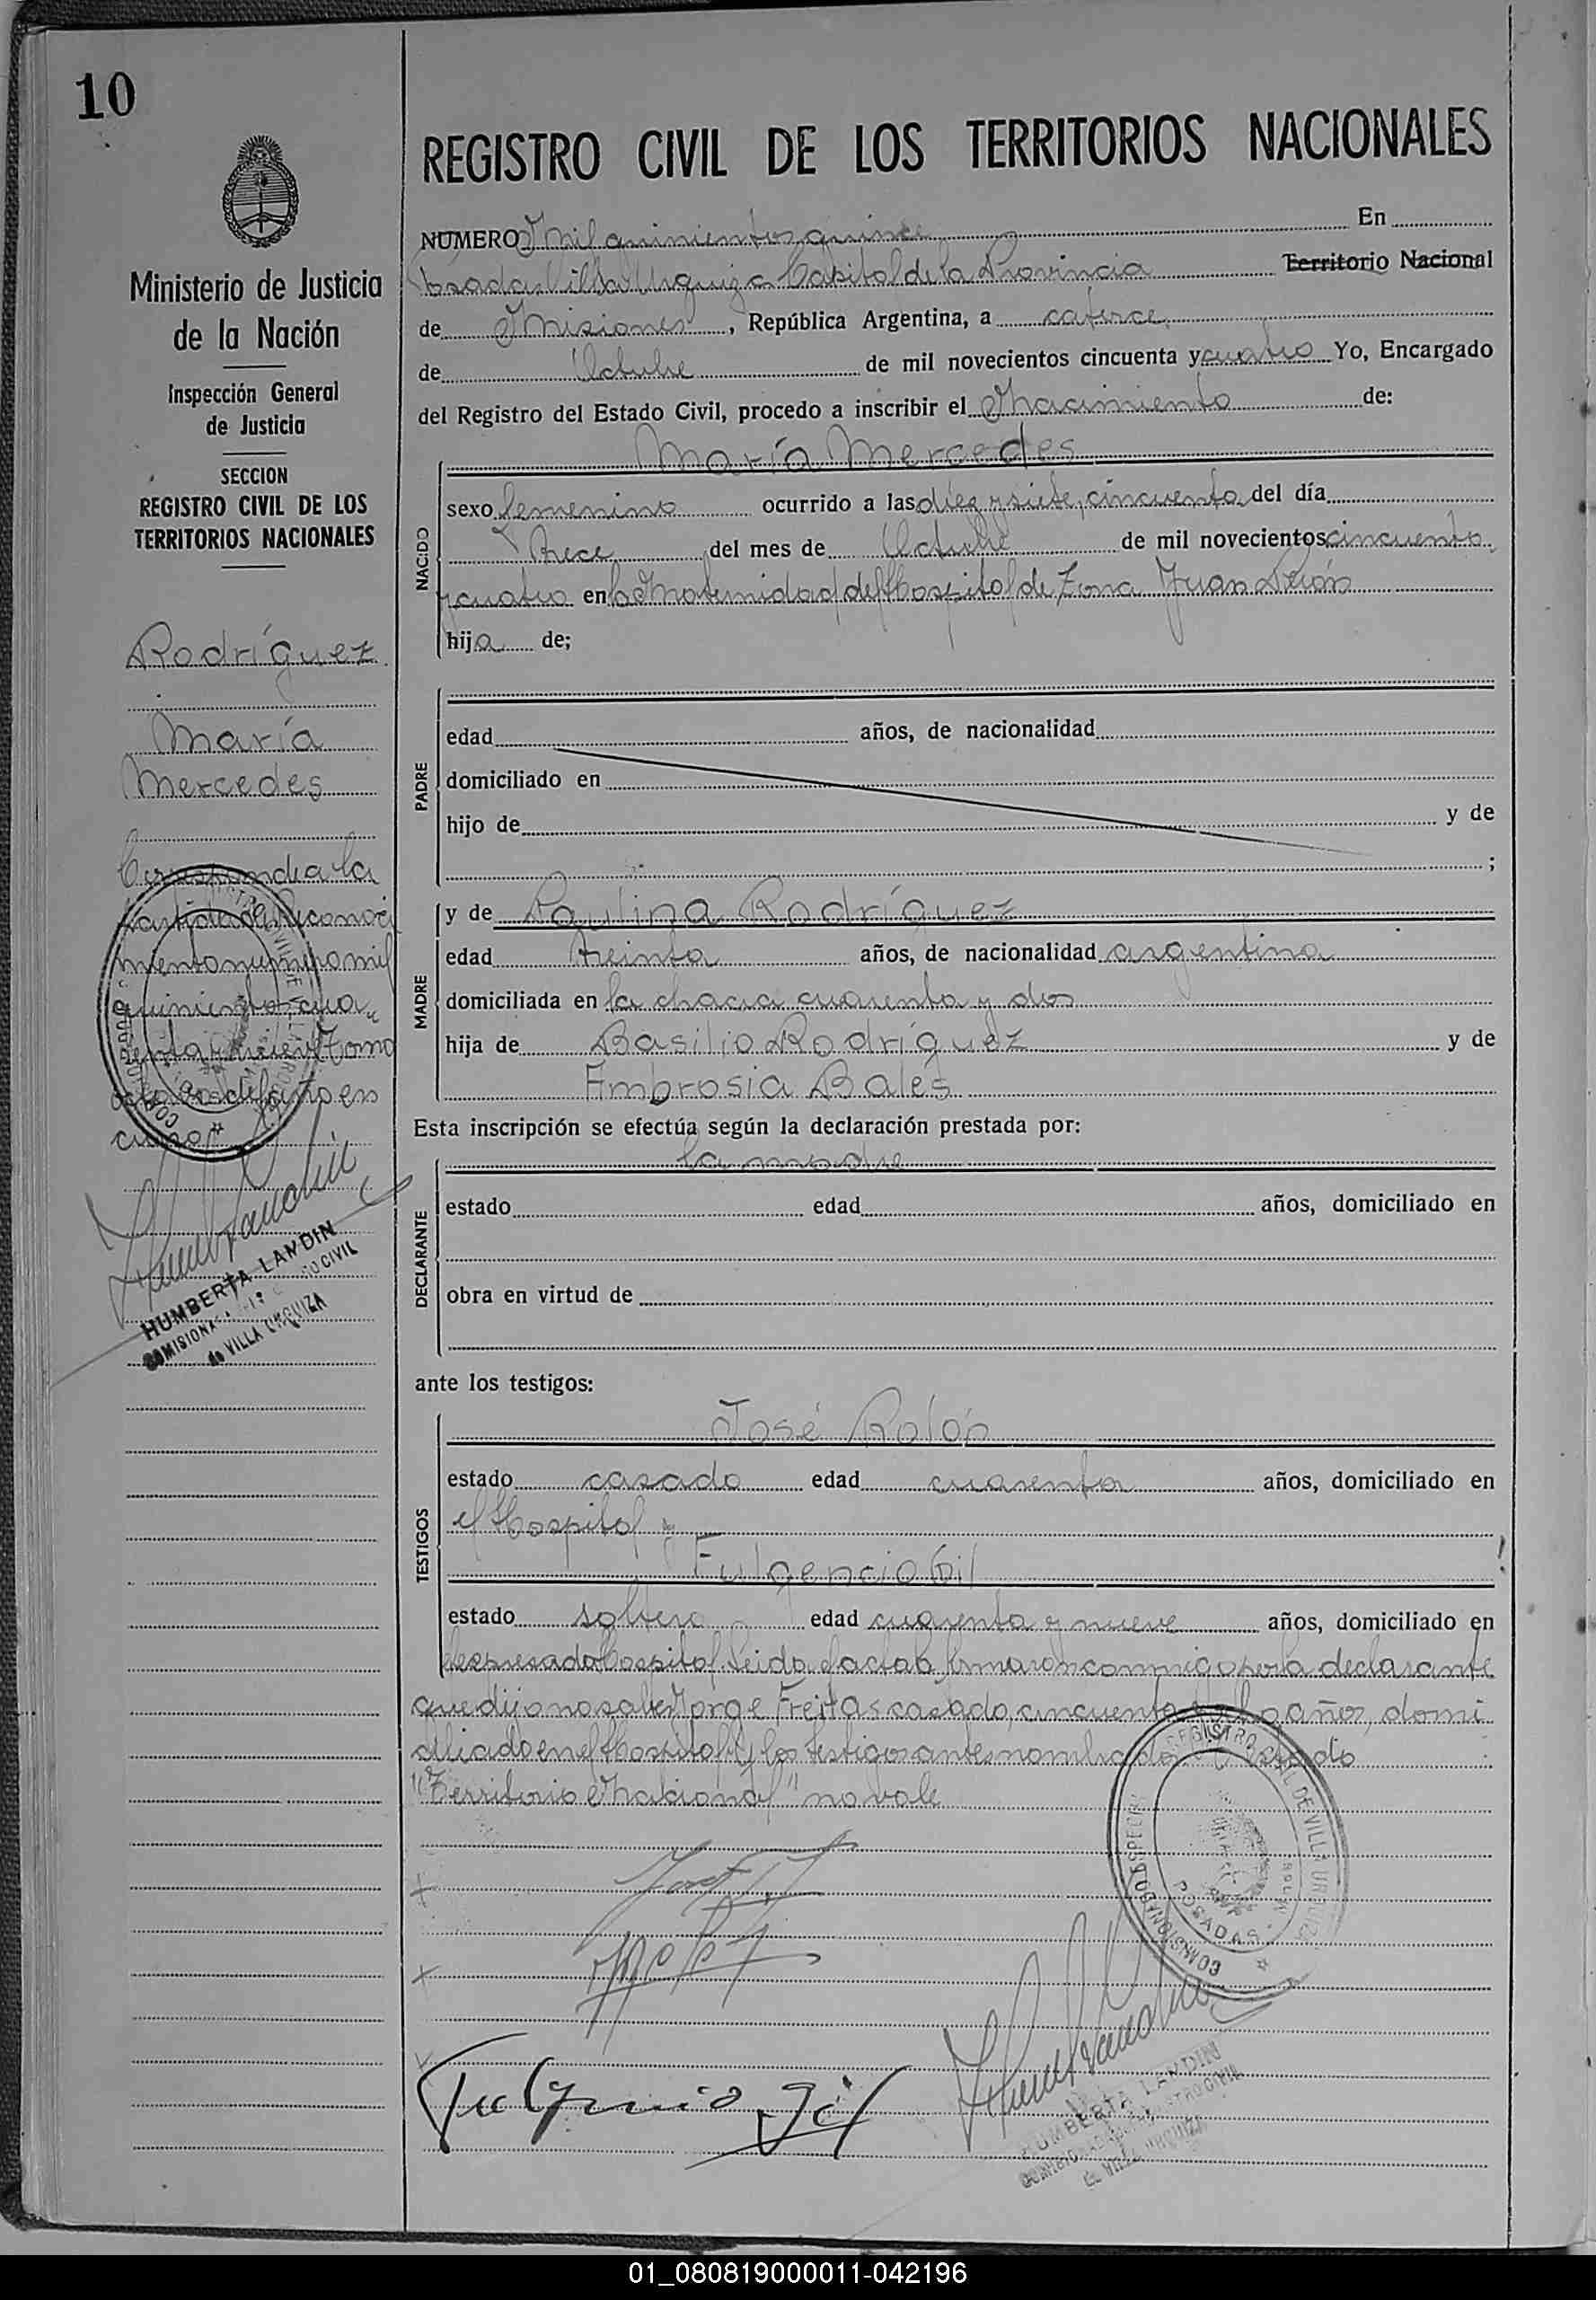 10
Ministerio de Justicia
de la Nación
Inspección General
de Justicia
SECCION
REGISTRO CIVIL DE LOS
TERRITORIOS NACIONALES
Rodríguez
María
Mercedes
Corresponde a la
partida de Reconoci
miento numero mil
quinientos cua
renta y nueve Tomo
octavo del año en
curso
HUMBERTA LANDIN
COMISIONA
CIVIL
de VILLA URQUIZA
REGISTRO CIVIL DE LOS TERRITORIOS NACIONALES
NUMERO mil quinientos quince En
Posadas, Villa Urquiza Capital de la Provincia Territorio Nacional
de Misiones, República Argentina, a catorce
de Octubre de mil novecientos cincuenta y cuatro Yo, Encargado
del Registro del Estado Civil, procedo a inscribir el Nacimiento de:
María Mercedes
NACIDO
sexo femenino ocurrido a las diez y siete, cincuenta del día
Trece del mes de Octubre de mil novecientos cincuenta
y cuatro en la Maternidad del Hospital de Zona Juan Perón
hija de;
PADRE
edad años, de nacionalidad
domiciliado en
hijo de y de
;
MADRE
y de Paulina Rodríguez
edad treinta años, de nacionalidad argentina
domiciliada en la chacra cuarenta y dos
hija de Basilio Rodríguez y de
Ambrosia Bales
Esta inscripción se efectúa según la declaración prestada por:
la madre
DECLARANTE
estado edad años, domiciliado en
obra en virtud de
ante los testigos:
José Rolón
TESTIGOS
estado casado edad cuarenta años, domiciliado en
el Hospital y
Fulgencio Gil
estado soltero edad cuarenta y nueve años, domiciliado en
el expresado Hospital. Leida el acta la firmaron conmigo por la declarante
que dijo no saber Jorge Freitas casado, cincuenta y ocho años, domi
ciliado en el Hospital y los testigos antes nombrados. Testado
"Territorio Nacional" no vale
REGISTRO CIVIL DE VILLA URQUIZA
POSADAS
COMISIONADO
Fulgencio Gil
HUMBERTA LANDIN
01_080819000011-042196